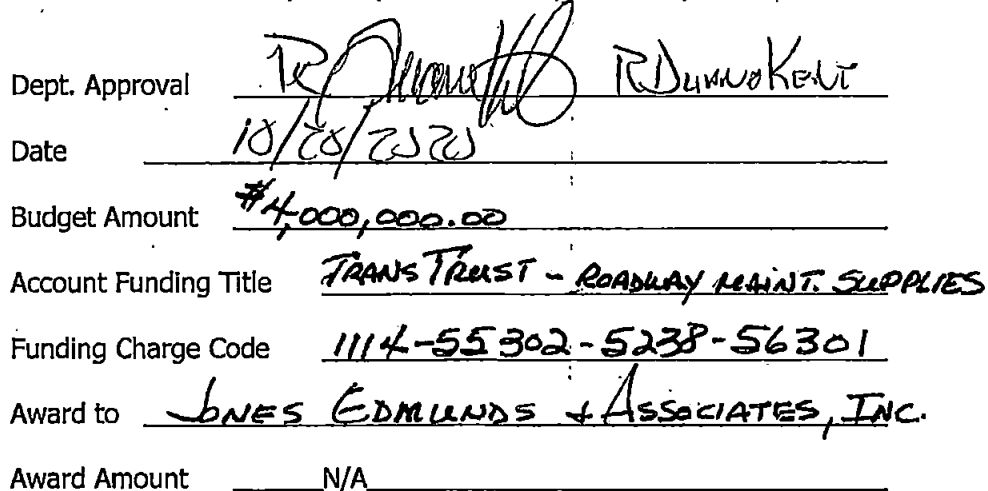 Dept. Approval R Duane Kent
Date 10/20/2020
Budget Amount $4,000,000.00
Account Funding Title TRANS TRUST - ROADWAY MAINT. SUPPLIES
Funding Charge Code 1114-55302-5238-56301
Award to JONES EDMUNDS & ASSOCIATES, INC.
Award Amount N/A